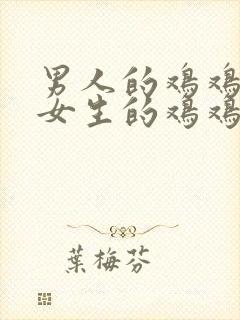 男人的鸡鸡
女生的鸡鸡
葉梅芬